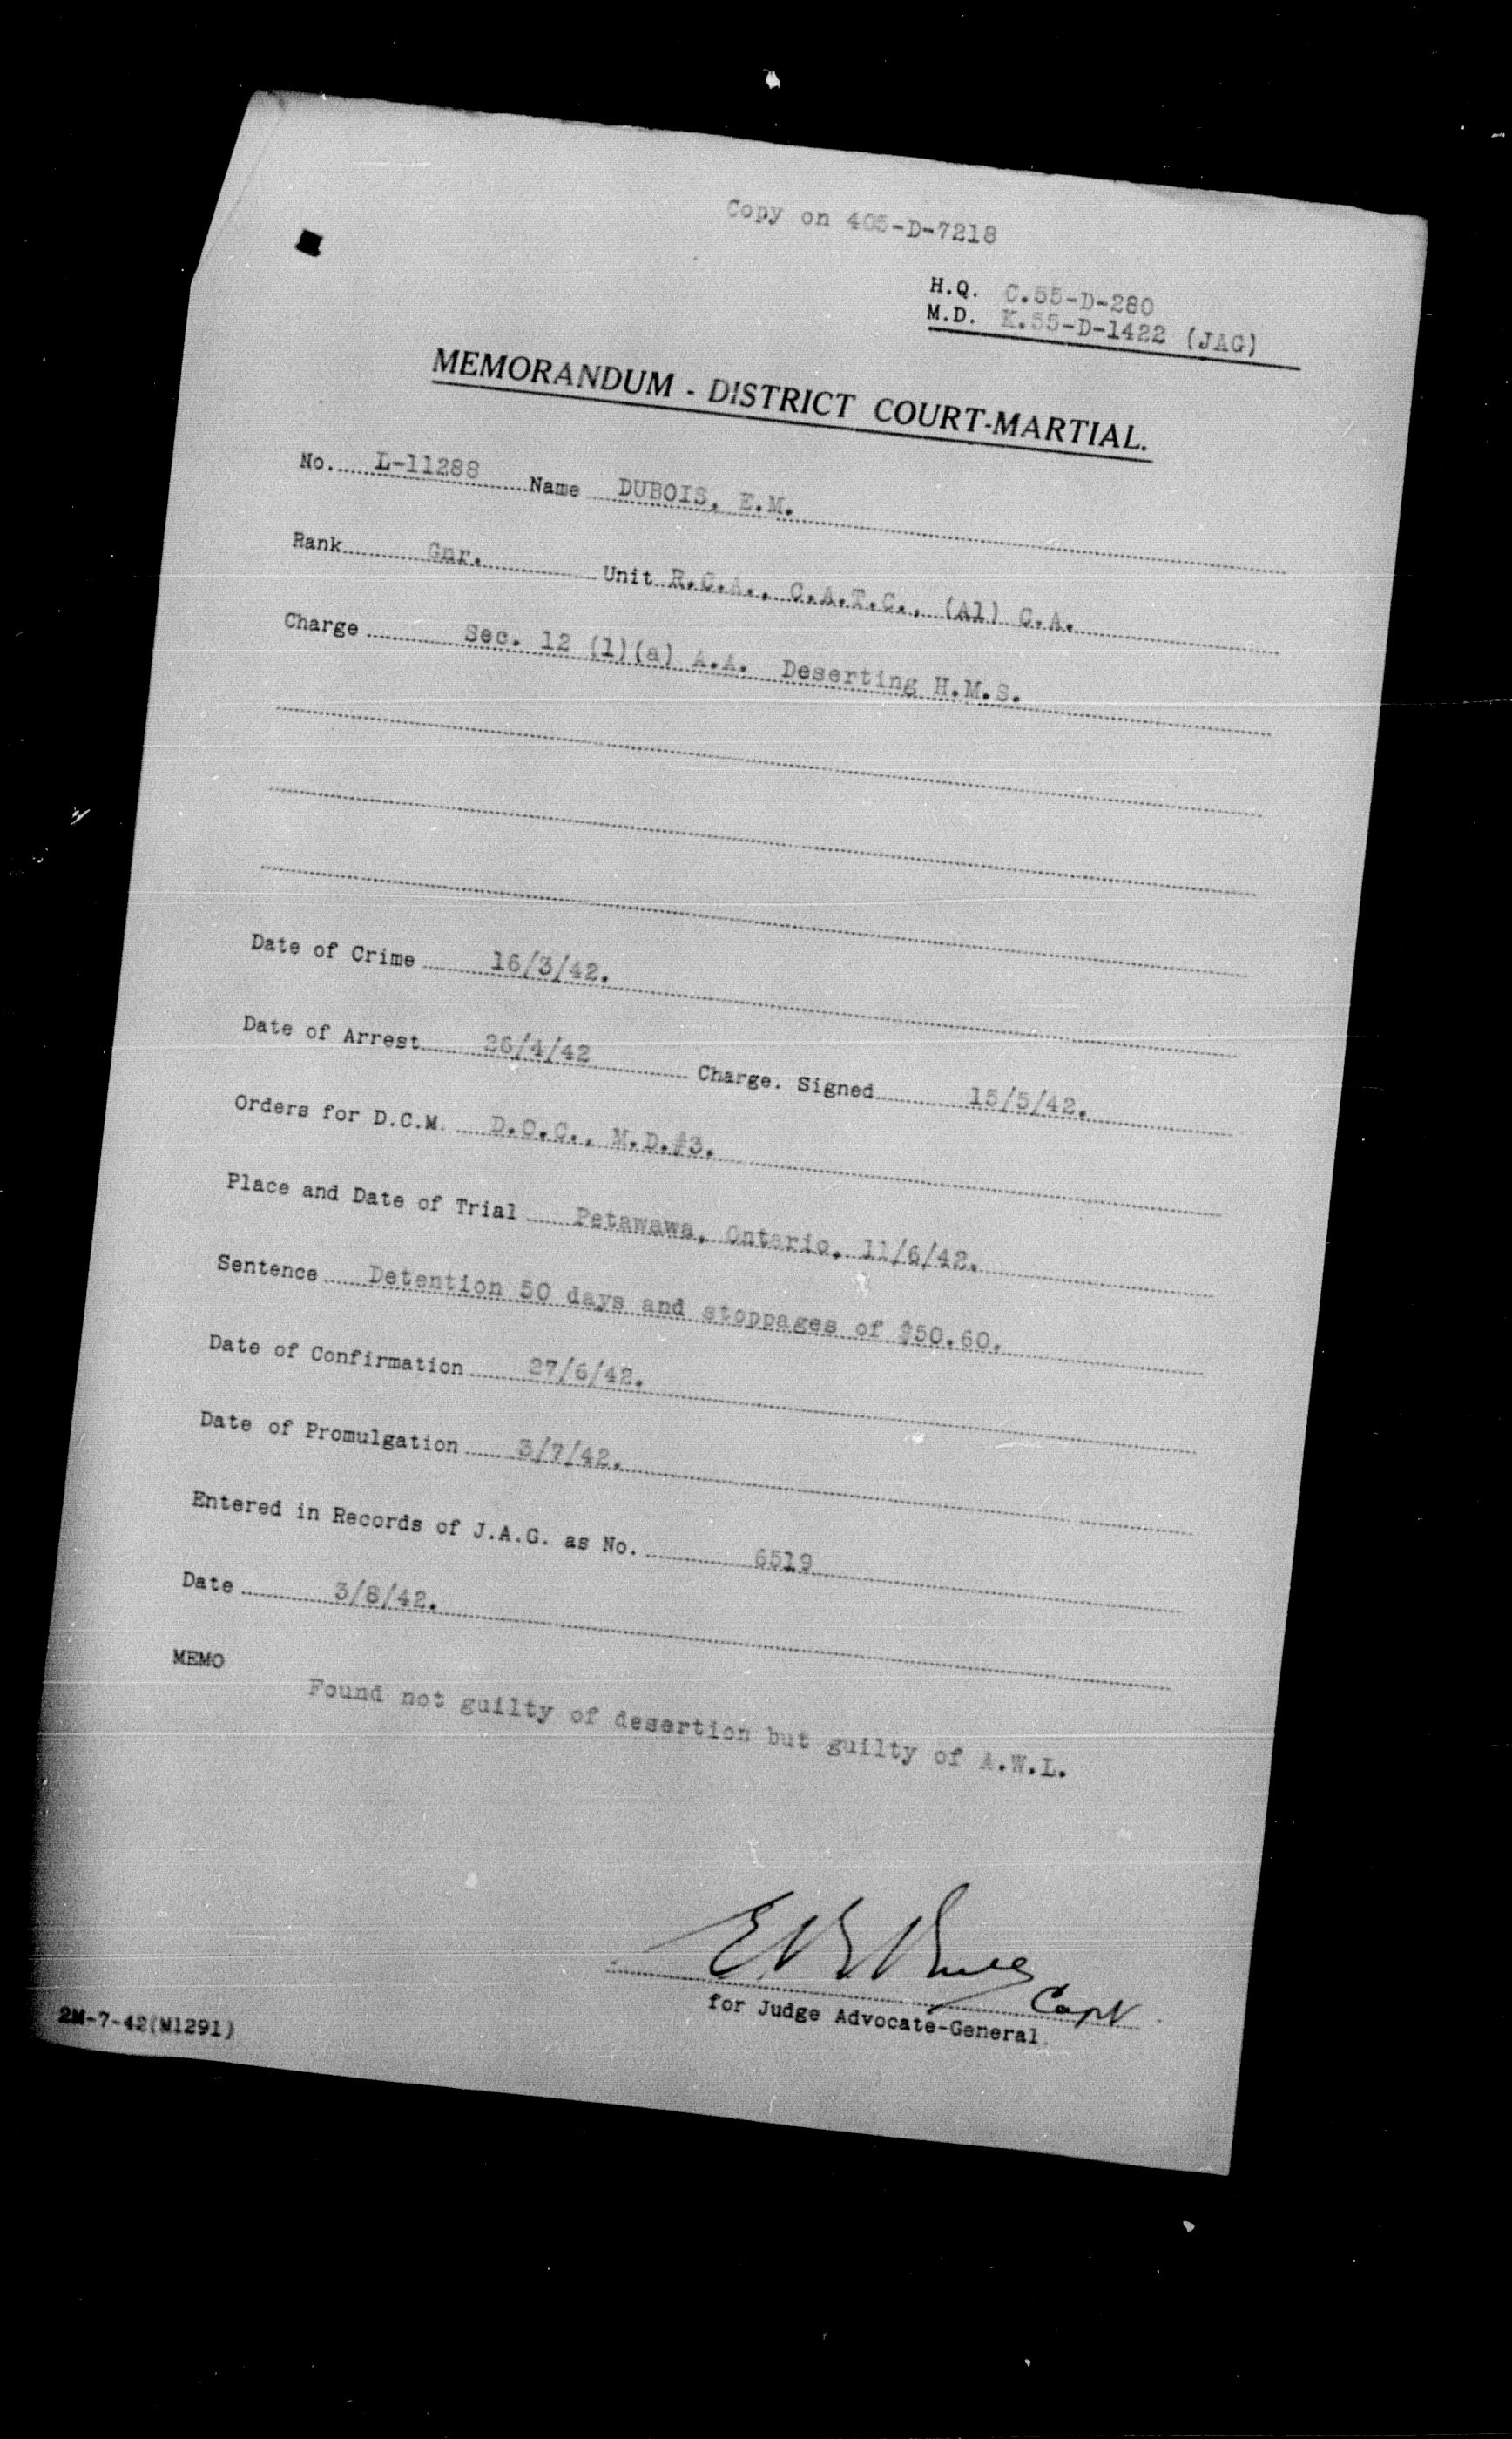 Copy on 405-D-7218
H.Q. C.55-D-280
M.D. K.55-D-1422 (JAG)
MEMORANDUM - DISTRICT COURT-MARTIAL.
No. L-11288 Name DUBOIS, E.M.
Rank Gnr. Unit R.C.A., C.A.T.C., (A1) C.A.
Charge Sec. 12 (1)(a) A.A. Deserting H.M.S.
Date of Crime 16/3/42.
Date of Arrest 26/4/42 Charge. Signed 15/5/42.
Orders for D.C.M. D.O.C., M.D.#3.
Place and Date of Trial Petawawa, Ontario, 11/6/42.
Sentence Detention 50 days and stoppages of $50.60.
Date of Confirmation 27/6/42.
Date of Promulgation 3/7/42.
Entered in Records of J.A.G. as No. 6519
Date 3/8/42.
MEMO
Found not guilty of desertion but guilty of A.W.L.
Capt.
for Judge Advocate-General.
2M-7-42(M1291)